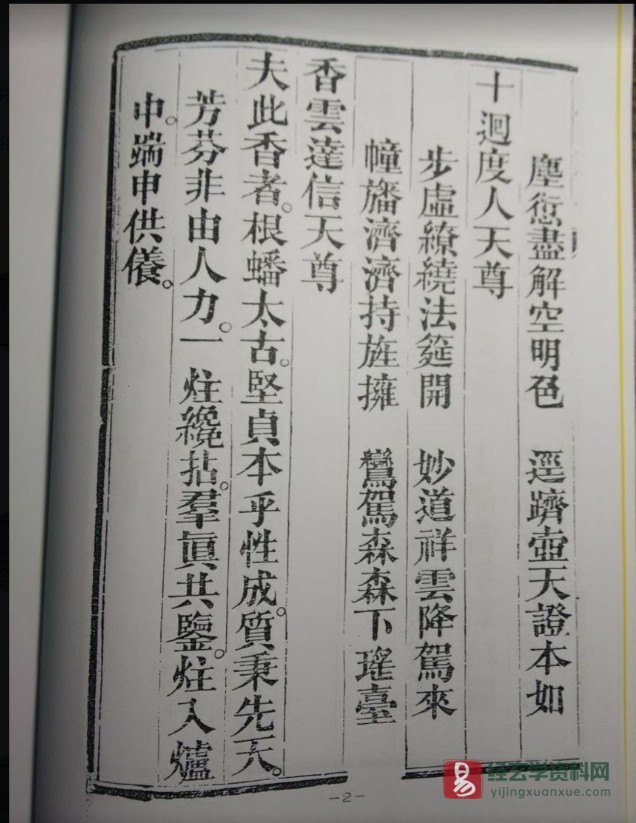 塵愆盡解空明色　逕躋壺天證本如
十迴度人天尊
步虛繚繞法筵開　妙道祥雲降駕來
幢旛濟濟持旌擁　鸞駕森森下瑤臺
香雲達信天尊
夫此香者。根蟠太古。堅貞本乎性成。質秉先天。
芳芬非由人力。一炷纔拈。羣眞共鑒。炷入爐
中。端申供儀。
-2-
易
经玄学资料网
yijingxuanxue.com